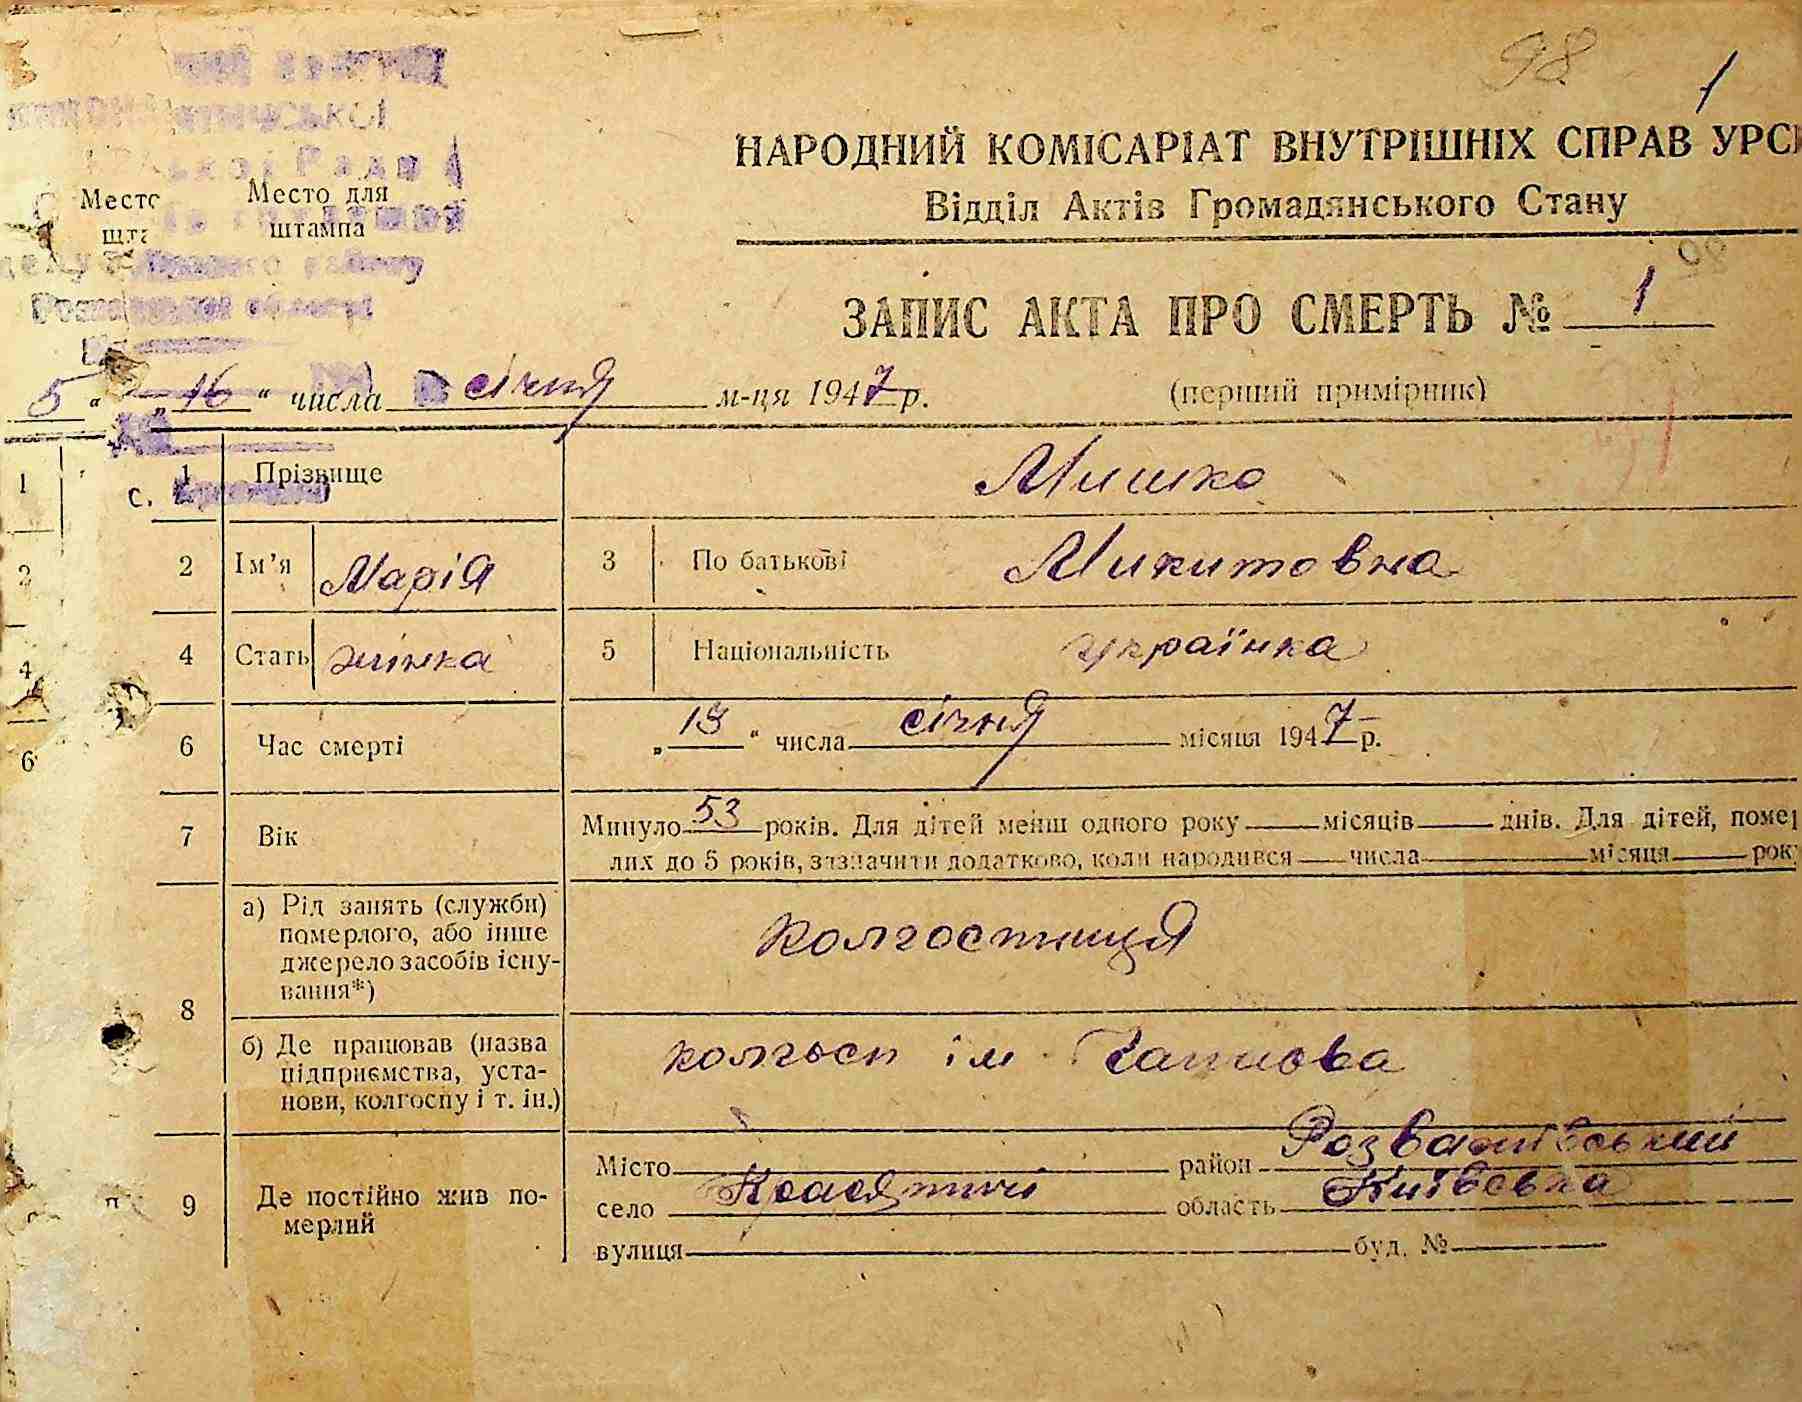 98
1
НАРОДНИЙ КОМІСАРІАТ ВНУТРІШНІХ СПРАВ УРС
Відділ Актів Громадянського Стану
Место
Место для
штампа
району
області
20
ЗАПИС АКТА ПРО СМЕРТЬ № 1
5 “ „ 16 “ числа січня м-ця 1947 р. (перший примірник)
1 1 Прізвище Мишко
с.
2 Ім’я Марія 3 По батькові Микитовна
4 4 Стать жінка 5 Національність українка
6 6 Час смерті „ 13 “ числа січня місяця 1947 р.
7 Вік Минуло 53 років. Для дітей менш одного року місяців днів. Для дітей, помер
лих до 5 років, зазначити додатково, коли народився числа місяця року
8 а) Рід занять (служби)
померлого, або інше
джерело засобів існу-
вання*) колгостниця
б) Де працював (назва
підприємства, уста-
нови, колгоспу і т. ін.) колгосп ім Чапаєва
9 Де постійно жив по-
мерлий
Місто район Розважівський
село Красятичі область Київська
вулиця буд. №